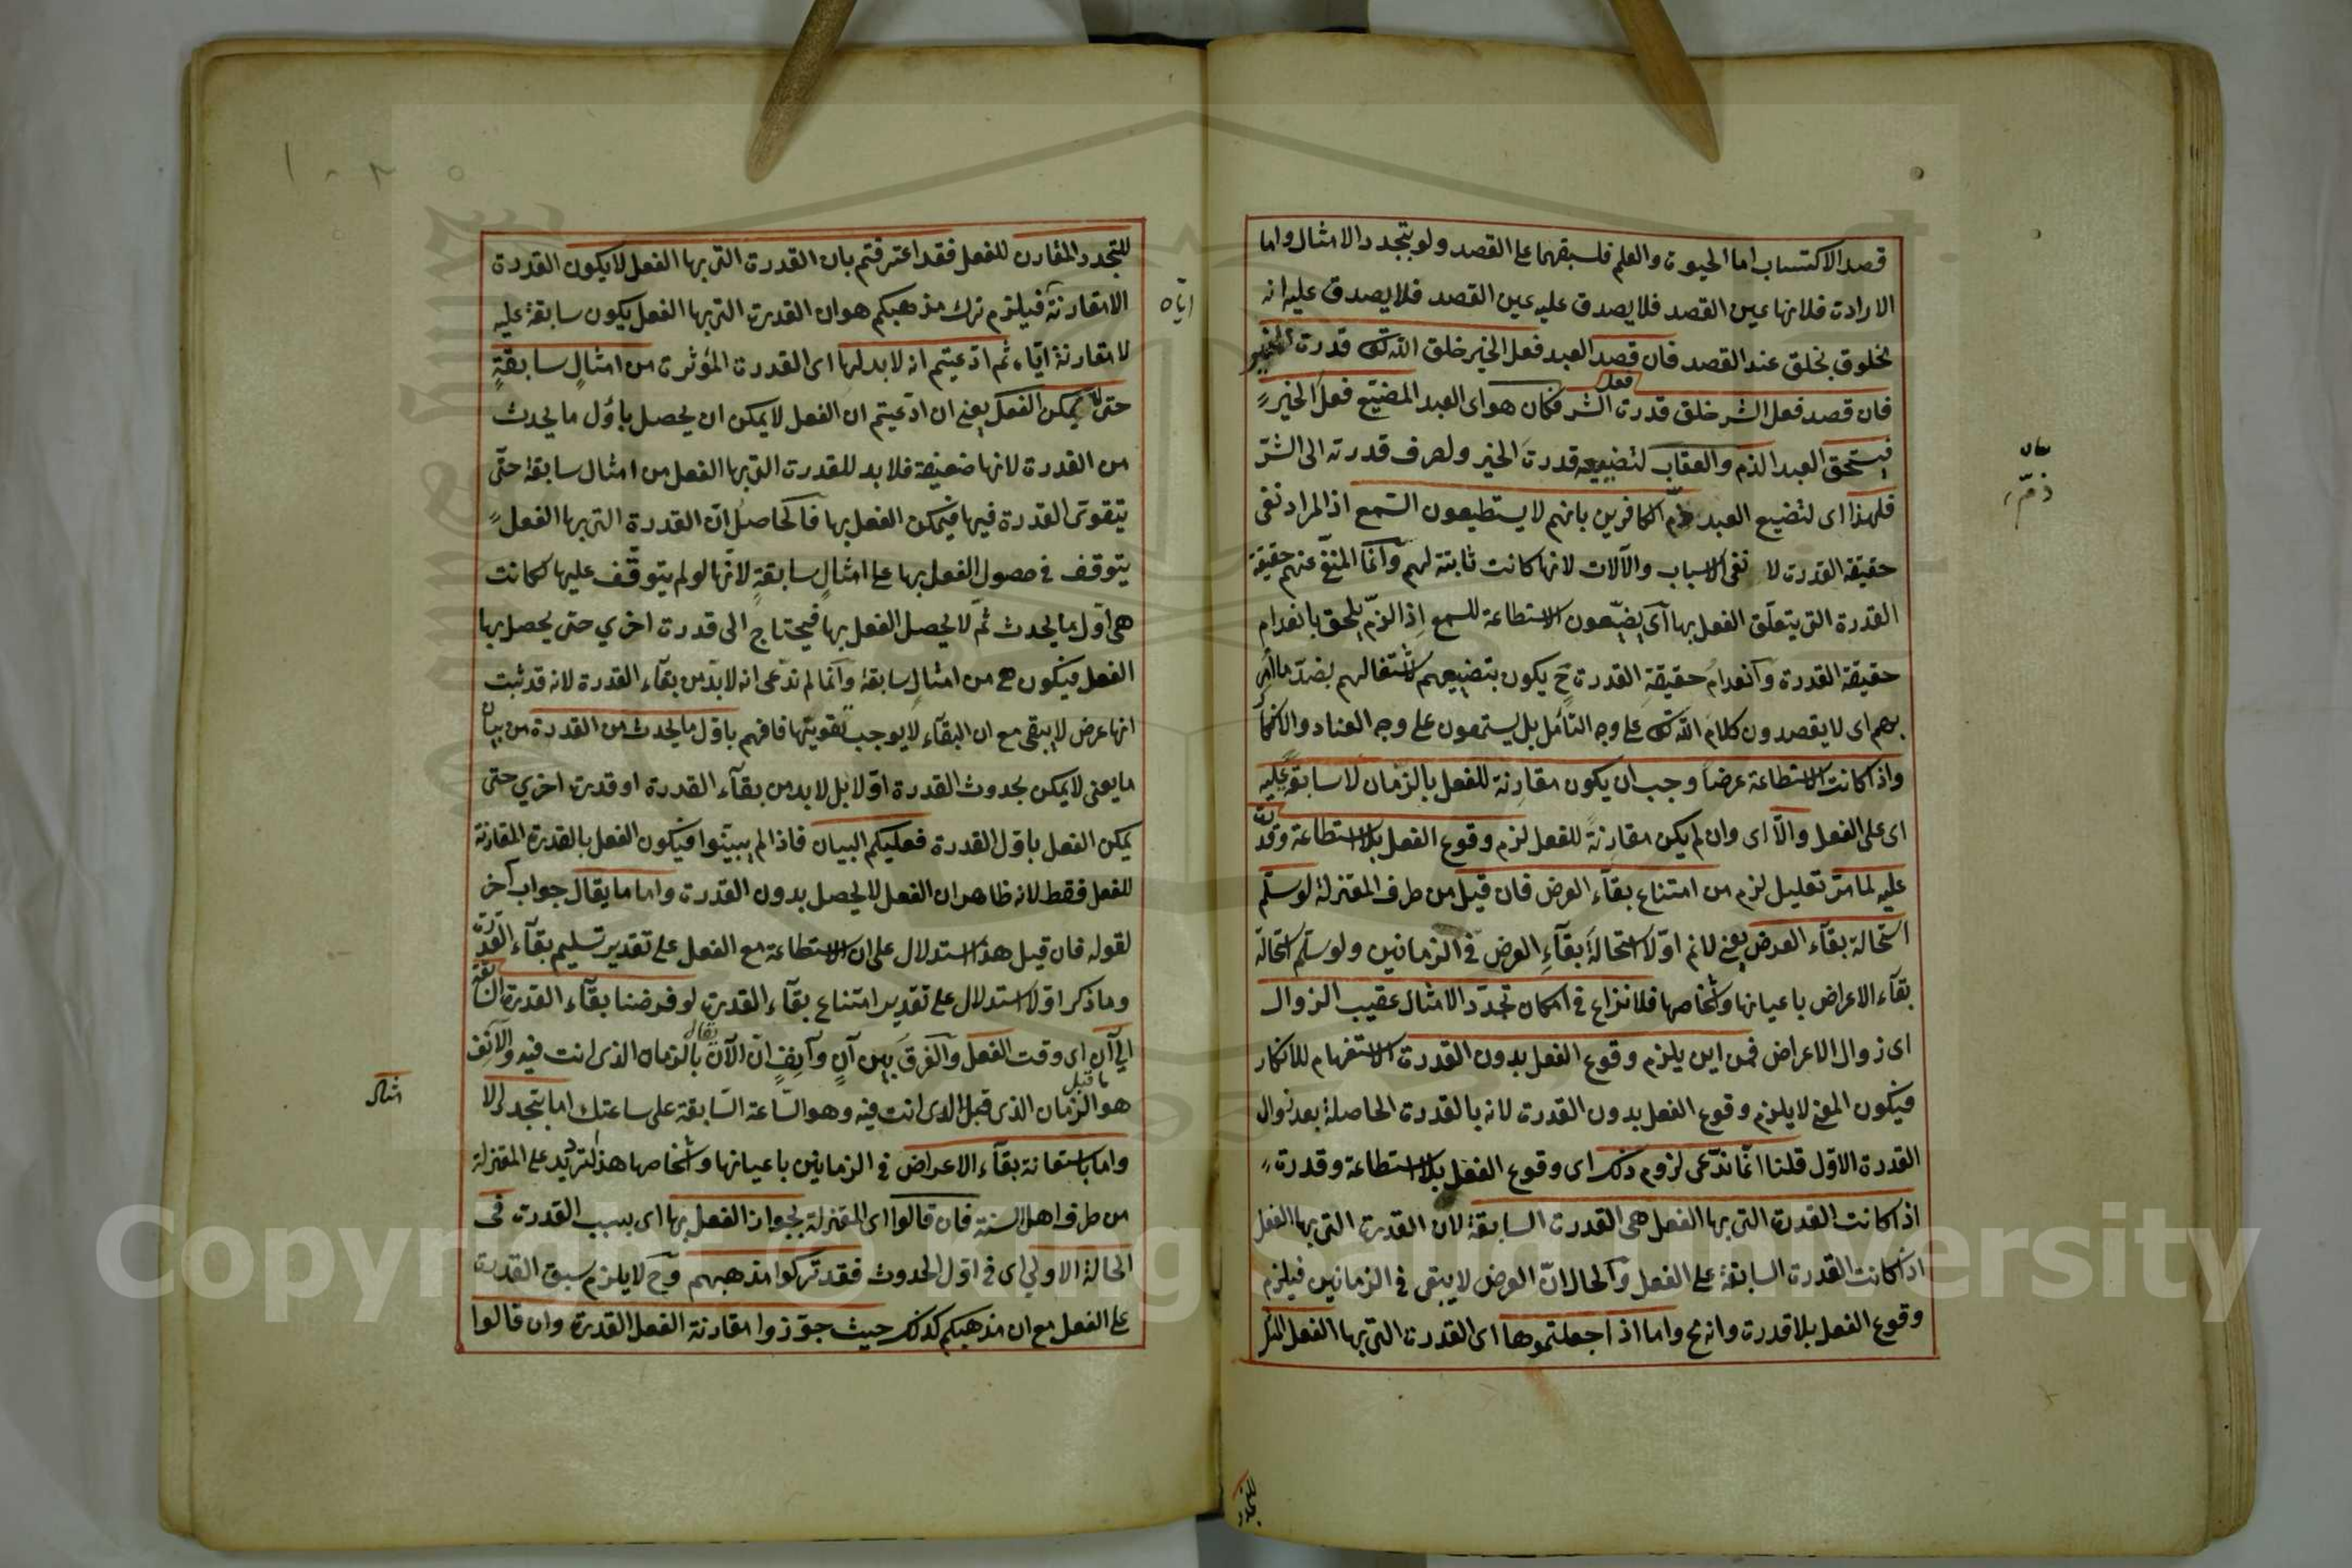 قصد الاكتساب اما الحيوة والعلم فلسبقهما على القصد ولو بتجدد الامثال واما
الارادة فلانها عين القصد فلا يصدق عليه عين القصد فلا يصدق عليه انه
مخلوق بخلق عند القصد فان قصد العبد فعل الخير خلق الله تعه قدرة الخير
فان قصد فعل الشر خلق قدرة فعل الشر فكان هو اى العبد المضيّع فعل الخير
فيستحق العبد الذم والعقاب لتضييعه قدرة الخير ولصرف قدرته الى الشرّ
فلهذا اى لتضيع العبد ذمّ الكافرين بانهم لا يستطيعون السّمع اذ المراد نفى
حقيقة القدرة لا نفى الاسباب والآلات لانها كانت ثابتة لهم وانما المنفى عنهم حقيقة
القدرة التى يتعلّق الفعل بها اى يضيّعون الاستطاعة للسمع اِذ الذمّ يلحق بانعدام
حقيقة القدرة وانعدام حقيقة القدرة ح يكون بتضييعهم لاشتغالهم بضدّ ما اُمِر
بهم اى لا يقصدون كلام الله تعه على وجه التأمل بل يستمعون على وجه العناد والانكا
واذا كانت الاستطاعة عرضا وجب ان يكون مقارنة للفعل بالزمان لا سابقة عليه
اى على الفعل والّا اى وان لم يكن مقارنةً للفعل لزم وقوع الفعل بلا استطاعة وقدرة
عليه لما مرّ تعليل لزم من امتناع بقآء العرض فان قيل من طرف المعتزلة لو سلّم
استحالة بقآء العرض يعنى لانم اوّلا استحالةَ بقآءِ العرض فى الزمانين ولو سلّم استحالة
بقآء الاعراض باعيانها واشخاصها فلا نزاع فى امكان تجدّد الامثال عقيب الزوال
اى زوال الاعراض فمن اين يلزم وقوع الفعل بدون القدرة الاستفهام للانكار
فيكون المعنى لا يلزم وقوع الفعل بدون القدرة لانه بالقدرة الحاصلة بعد زوال
القدرة الاوّل قلنا انّما ندّعى لزوم ذلك اى وقوع الفعل بلا استطاعة وقدرة
اذا كانت القدرة التى بها الفعل هى القدرة السابقة لان القدرة التى بها الفعل
اذا كانت القدرة السابقة على الفعل والحال انّ العرض لا يبقى فى الزمانين فيلزم
وقوع الفعل بلا قدرة وانه مح واما اذا جعلتموها اى القدرة التى بها الفعل المثل
للتجدد
ذمّ
للمتجدد المقارن للفعل فقد اعترفتم بان القدرة التى بها الفعل لا يكون القدرة
الا مقارنة فيلزم ترك مذهبكم هو ان القدرة التى بها الفعل يكون سابقة عليه
لا مقارنة ايّاه ثم ادّعيتم انه لا بدلها اى القدرة المؤثرة من امثالٍ سابقةٍ
حتى لا يمكن الفعل يعنى ان ادّعيتم ان الفعل لا يمكن ان يحصل باوّل ما يحدث
من القدرة لانها ضعيفة فلا بد للقدرة التى بها الفعل من امثال سابقة حتّى
يتقوّى القدرة فيها فيمكن الفعل بها فالحاصل انّ القدرة التى بها الفعل
يتوقف فى حصول الفعل بها على امثالٍ سابقةٍ لانّها لو لم يتوقّف عليها لكانت
هى اوّل ما يحدث ثمّ لا يحصل الفعل بها فيحتاج الى قدرة اخري حتى يحصل بها
الفعل فيكون هى من امثالٍ سابقة وانما لم ندّعى انه لا بدّ من بقآء القدرة لانه قد ثبت
انها عرض لا يبقى مع ان البقآء لا يوجب تقويتها فافهم باوّل ما يحدث من القدرة من بيان
ما يعنى لا يمكن بحدوث القدرة اوّلا بل لا بد من بقآء القدرة او قدرة اخري حتى
يمكن الفعل باوّل القدرة فعليكم البيان فاذا لم يبيّنوا فيكون الفعل بالقدرة المقارنة
للفعل فقط لانه ظاهر ان الفعل لا يحصل بدون القدرة واما ما يقال جواب آخر
لقوله فان قيل هذا استدلال على ان الاستطاعة مع الفعل على تقدير تسليم بقآء القدرة
وما ذكر اوّلا استدلال على تقدير امتناع بقآء القدرة لو فرضنا بقآء القدرة السّابقة
الى آن اى وقت الفعل والفرق بين آنٍ وآنفٍ انّ الآن يقال بالزمان الذى انت فيه والآنِف
هو الزّمان ما قبل الذى قبل الذى انت فيه وهو السّاعة السّابقة على ساعتك اما بتجدد الا
واما باستقامة بقآء الاعراض فى الزمانين باعيانها واشخاصها هذا لترديد على المعتزلة
من طرف اهل السنة فان قالوا اى المعتزلة بجواز الفعل بها اى بسبب القدرة فى
الحالة الاولى اى فى اوّل الحدوث فقد تركوا مذهبهم وح لا يلزم سبق القدرة
على الفعل مع ان مذهبكم كذلك حيث جوّزوا مقارنة الفعل القدرة وان قالوا
ايّاه
امثال
Copyright © King Saud University